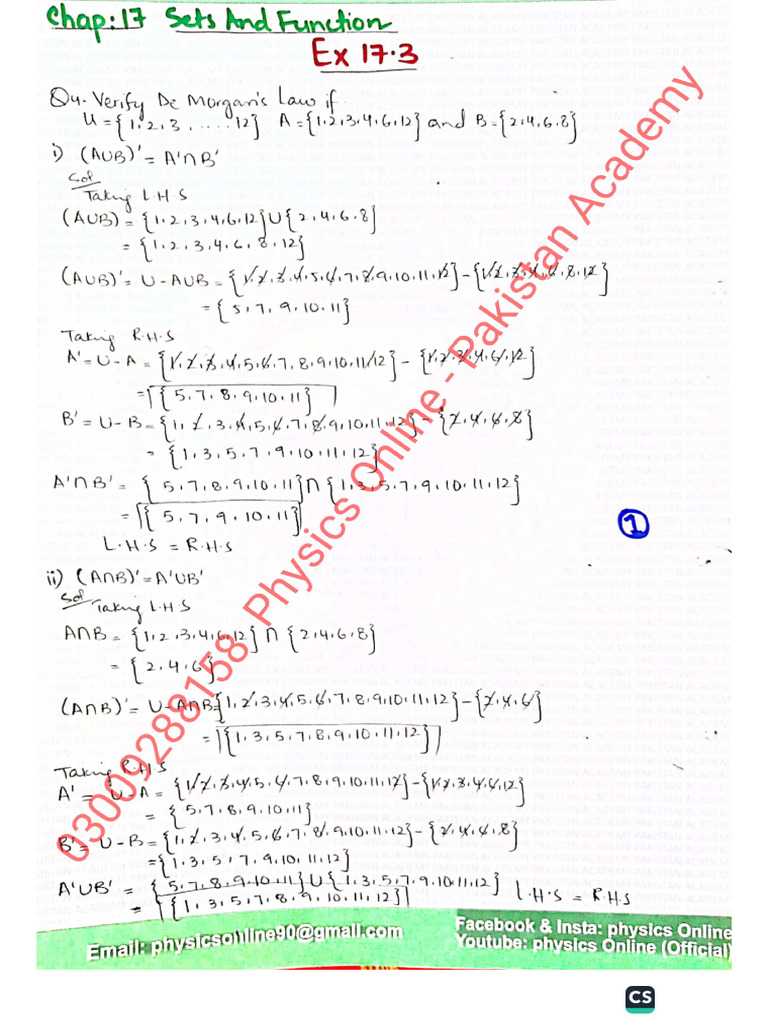 Chap:17 Sets And Function
Ex 17.3
Q4. Verify De Morgan's Law if
U = {1,2,3, .....12} A = {1,2,3,4,6,12} and B = {2,4,6,8}
i) (A∪B)' = A'∩B'
Sol
Taking L.H.S
(A∪B) = {1,2,3,4,6,12} ∪ {2,4,6,8}
= {1,2,3,4,6,8,12}
(A∪B)' = U - A∪B = {1,2,3,4,5,6,7,8,9,10,11,12} - {1,2,3,4,6,8,12}
= {5,7,9,10,11}
Taking R.H.S
A' = U - A = {1,2,3,4,5,6,7,8,9,10,11,12} - {1,2,3,4,6,12}
= {5,7,8,9,10,11}
B' = U - B = {1,2,3,4,5,6,7,8,9,10,11,12} - {2,4,6,8}
= {1,3,5,7,9,10,11,12}
A'∩B' = {5,7,8,9,10,11} ∩ {1,3,5,7,9,10,11,12}
= {5,7,9,10,11}
1
L.H.S = R.H.S
ii) (A∩B)' = A'∪B'
Sol
Taking L.H.S
A∩B = {1,2,3,4,6,12} ∩ {2,4,6,8}
= {2,4,6}
(A∩B)' = U - A∩B = {1,2,3,4,5,6,7,8,9,10,11,12} - {2,4,6}
= {1,3,5,7,8,9,10,11,12}
Taking R.H.S
A' = U - A = {1,2,3,4,5,6,7,8,9,10,11,12} - {1,2,3,4,6,12}
= {5,7,8,9,10,11}
B' = U - B = {1,2,3,4,5,6,7,8,9,10,11,12} - {2,4,6,8}
= {1,3,5,7,9,10,11,12}
A'∪B' = {5,7,8,9,10,11} ∪ {1,3,5,7,9,10,11,12} L.H.S = R.H.S
= {1,3,5,7,8,9,10,11,12}
03009288158 Physics Online - Pakistan Academy
Email: physicsonline90@gmail.com
Facebook & Insta: physics Online
Youtube: physics Online (Official)
CS